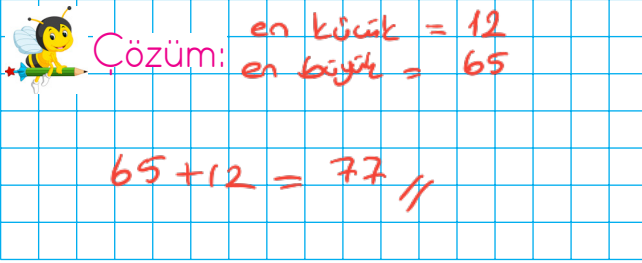 Çözüm:
en küçük = 12
en büyük = 65
65+12 = 77 //